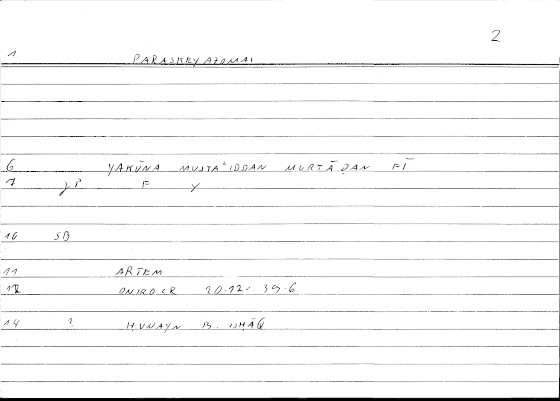 2
1 PARASKEYAZOMAI
6 YAKŪNA MUSTAʿIDDAN MURTĀḌAN FĪ
7 JP F Y
10 SB
11 ARTEM
12 ONIROCR 20.12. 39.6
14 ? ḤUNAYN B. ISḤĀQ